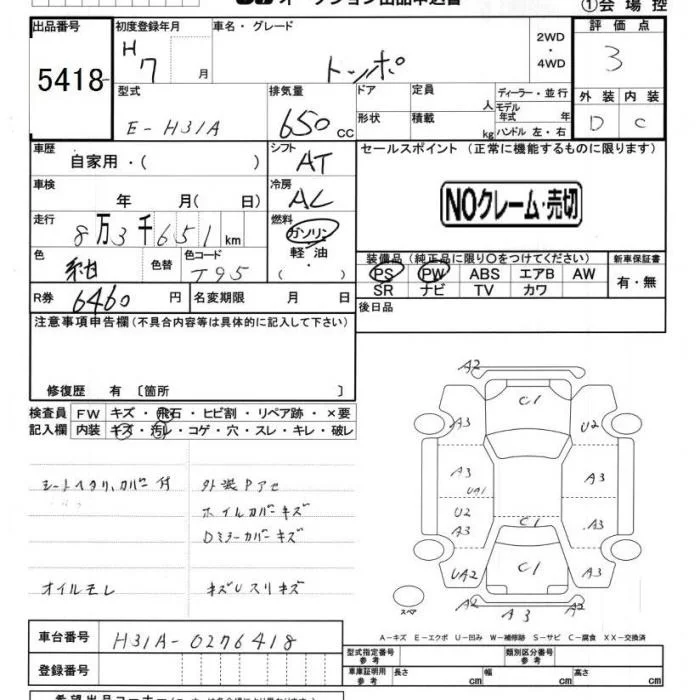 オークション出品申込書
①会場控
出品番号
5418
初度登録年月
H
7 月
車名・グレード
トッポ
2WD
・
4WD
評価点
3
型式
E-H31A
排気量
650 cc
ドア
定員
人
ディーラー・並行
モデル
年式 年
ハンドル 左・右
形状
積載
kg
外装 内装
D C
車歴
自家用・( )
シフト
AT
セールスポイント (正常に機能するものに限ります)
NOクレーム・売切
車検
年 月( 日)
冷房
AC
走行
8万3千651km
燃料
ガソリン
軽油
・
( )
色
紺
色替
色コード
T95
装備品 (純正品に限り○をつけてください)
PS PW ABS エアB AW
SR ナビ TV カワ
新車保証書
有・無
R券
6460 円
名変期限 月 日
後日品
注意事項申告欄(不具合内容等は具体的に記入して下さい)
修復歴 有 〔箇所 〕
検査員
記入欄
FW キズ・飛石・ヒビ割・リペア跡・×要
内装 キズ・汚レ・コゲ・穴・スレ・キレ・破レ
シートヘタリ、カバー付
外装Pアセ
ホイルカバーキズ
Dミラーカバーキズ
オイルモレ
キズUスリキズ
A2
C1
A3
U2
A3
UA1
A3
U2
A3
C1
A3
UA2
C1
A3
スペア
A2
A3
A2
A-キズ E-エクボ U-凹み W-補修跡 S-サビ C-腐食 XX-交換済
車台番号
H31A-0276418
登録番号
型式指定番号
参考
類別区分番号
参考
車庫証明用
参考
長さ cm
幅 cm
高さ cm
希望出品コーナー